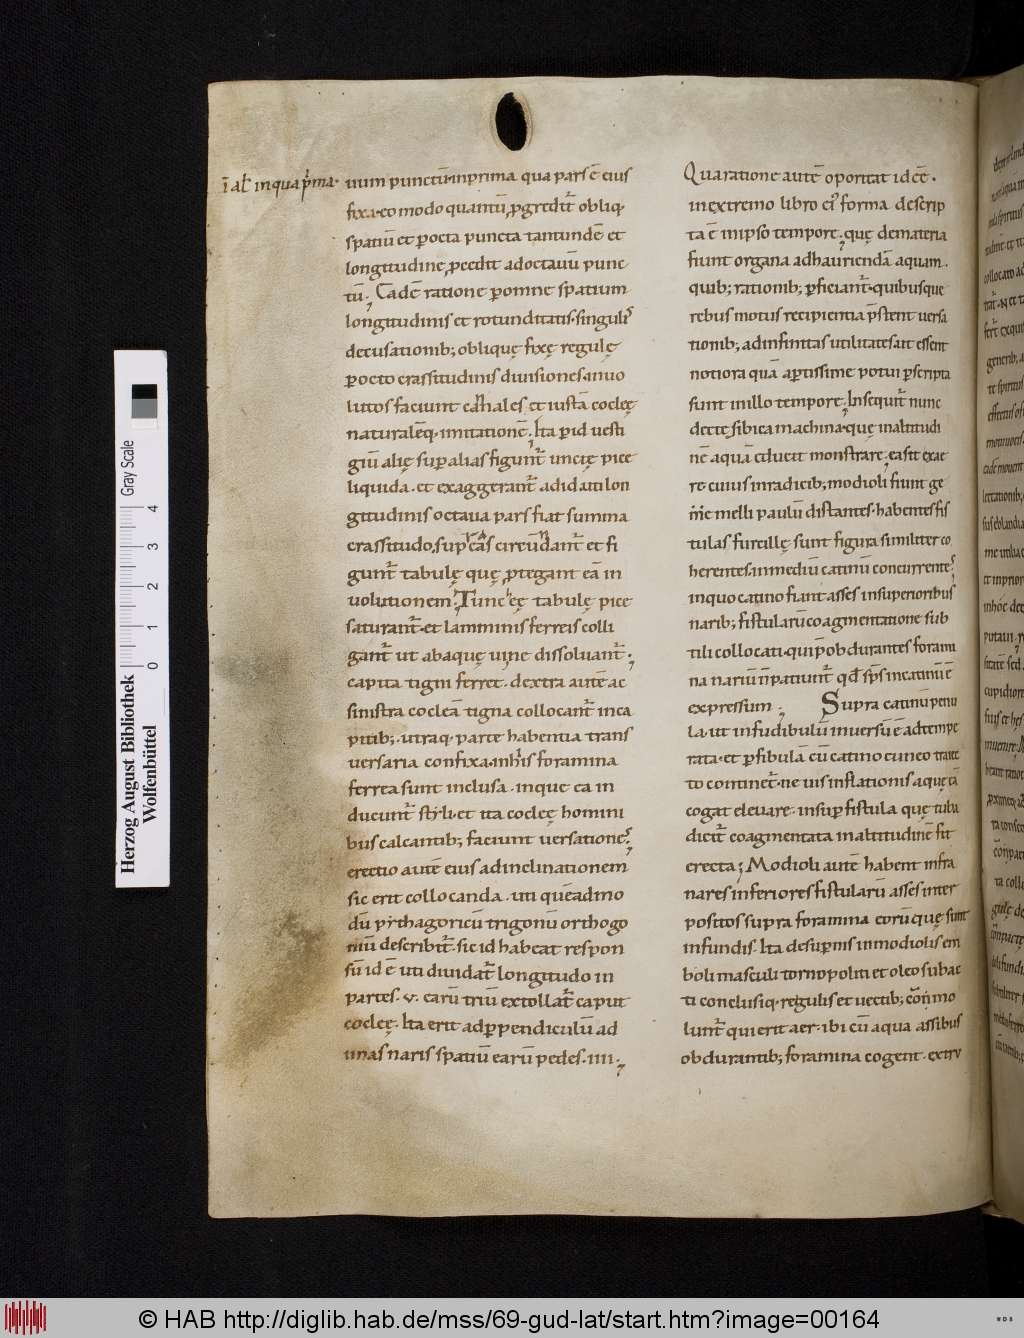 ī al' in qua p'ma·
uum punctū·in prima qua pars ē eius
fixa·eo modo quantū ꝓgredit᷑ obliq·
spatiū et ꝑ octa puncta tantundē et
longitudine ꝓcedit ad octauū punc
tū. Eadē ratione ꝑ omne spatium
longitudinis et rotunditatis·singulis
decusationib; oblique fixę regulę
ꝑ octo crassitudinis diuisiones·inuo
lutos faciunt canales et iustā cocleę
naturalēq· imitationē. Ita ꝑ id uesti
giū alię suꝑ alias figunt᷑ uncię pice
liquida·et exaggerant᷑ ad id uti lon
gitudinis octaua pars fiat summa
crassitudo, sup᷑ cas circūdant᷑ et fi
gunt᷑ tabulę quę ꝓtegant eā in
uolutionem. Tunc hęę tabulę pice
saturant᷑·et lamminis ferreis colli
gant᷑ ut ab aquę uine dissoluant᷑·
capita tigni ferret·dextra autē ac
sinistra cocleā tigna collocant᷑ in ca
pitib;·utraq·parte habentia trans
uersaria confixa·in his foramina
ferrea sunt inclusa·inque ea in
ducunt᷑ styli·et ita cocleę homini
bus calcantib; faciunt uersationes.
erectio autē eius ad inclinationem
sic erit collocanda·uti quē admo
dū pythagoricū trigonū orthogo
niū describit᷑·sic id habeat respon
sū id ē uti diuidat᷑ longitudo in
partes·v·earū triū extollat᷑ caput
cocleę·Ita erit ad perpendiculū ad
imas naris spatiū earū pedes·iiii·
Qua ratione autē oportat id eē·
in extremo libro ei' forma descrip
ta ē in ipso tempore. quę de materia
fiunt organa ad hauriendā aquam·
quib; rationib; ꝑficiant᷑·quibusque
rebus motus recipientia p̄stent uersa
tionib; ad infinitas utilitates·ut essent
notiora quā aptissime potui ꝑscripta
sunt in illo tempore. Insequit᷑ nunc
de ctesibica machina·quę in altitudi
nē aquā educit monstrare. ea sit ex ae
re cuius in radicib; modioli fiunt ge
mine melli paulū distantes·habentes fis
tulas furcillę sunt figura similiter co
herentes·in mediū catinū concurrentes.
in quo catino fiant asses in superioribus
narib; fistularū coagmentatione sub
tili collocati·qui p̄obdurantes forami
na nariū n̄ patiunt᷑ qđ sp̄s in catinū ē
expressum. Supra catinū penu
la·ut infudibulū inuersū ē adtempe
rata·et ꝑ fibulā cū catino cuneo traiec
to continet᷑·ne uis inflationis aquę eā
cogat eleuare·insuꝑ fistula quę tuba
dicit᷑ coagmentata in altitudinē fit
erecta; Modioli autē habent infra
nares inferiores fistularū asses inter
positos supra foramina eorū quę sunt
in fundis·Ita de suꝑnis in modiolis em
boli masculi torno politi et oleo subac
ti conclusiq·regulis et uectib; con mo
lunt᷑ qui erit aer·ibi cū aqua assibus
obdurantib; foramina cogent·extru
Herzog August Bibliothek
Wolfenbüttel
Gray Scale
0 1 2 3 4
© HAB http://diglib.hab.de/mss/69-gud-lat/start.htm?image=00164
WDB